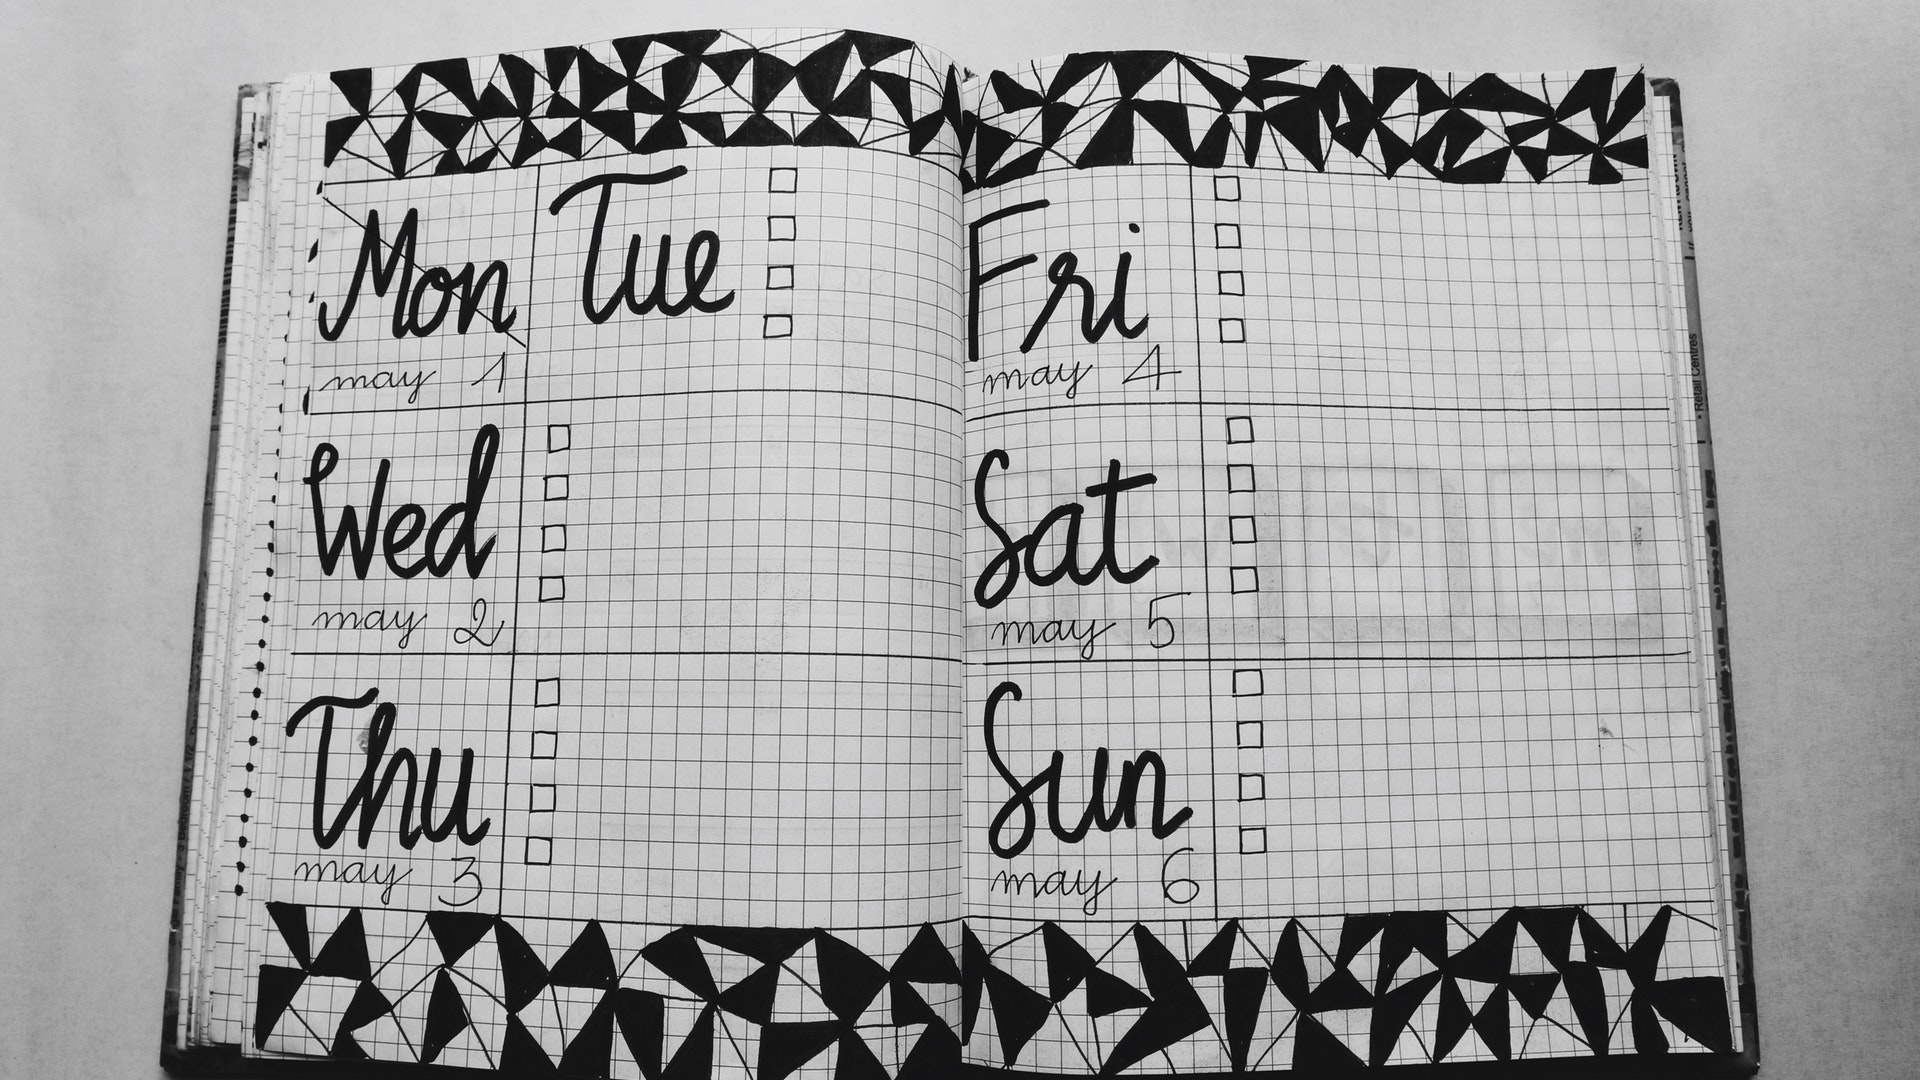 Mon Tue
may 1
Wed
may 2
Thu
may 3
Fri
may 4
Sat
may 5
Sun
may 6
Retail Centres